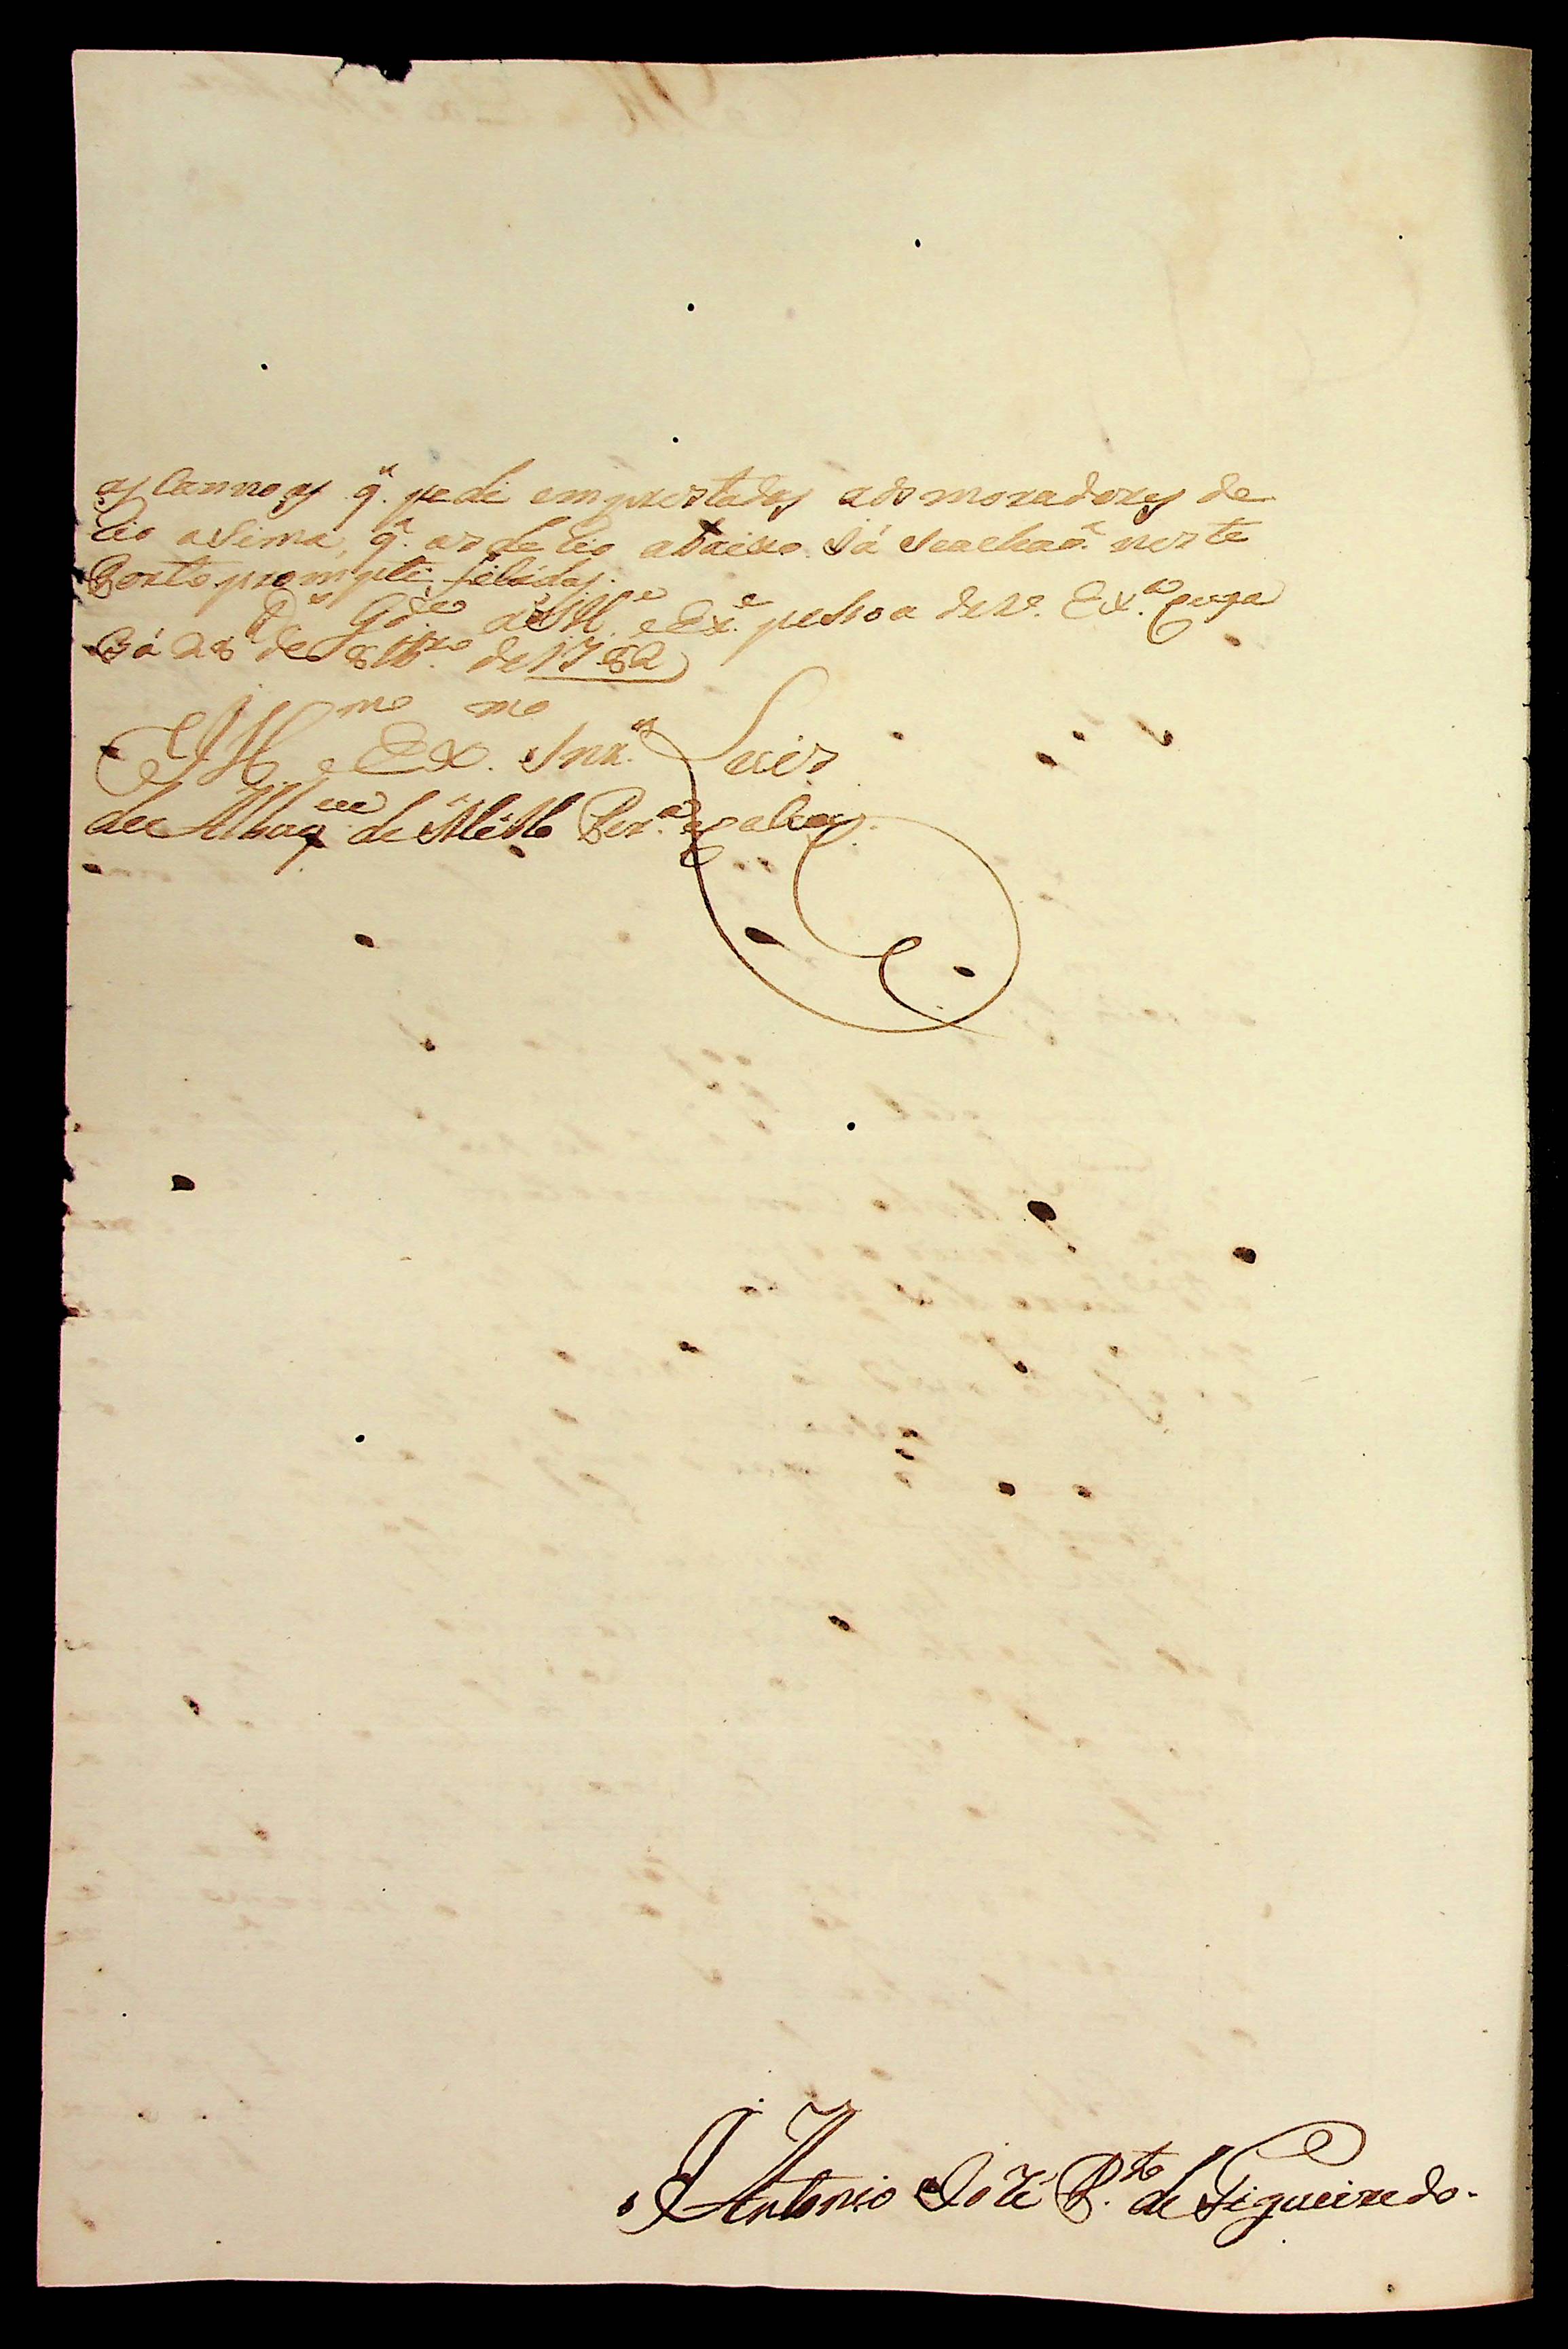 as Cannoas q̃. pedi emprestadas aos moradores de
Rio asima, q̃. as de Rio abaixo Já Seachaõ. neste
Porto prompte
Ds. Gde. a Ill.e e Ex.e pessoa de V. Ex.a Cuya
Bá 28 de 8tbro. de 1782
Ill.mo e Ex.mo Snr. Luis
de Albuq.ue de Mello Per.a e Caceres.
Antonio Jozé P.to de Figueiredo.